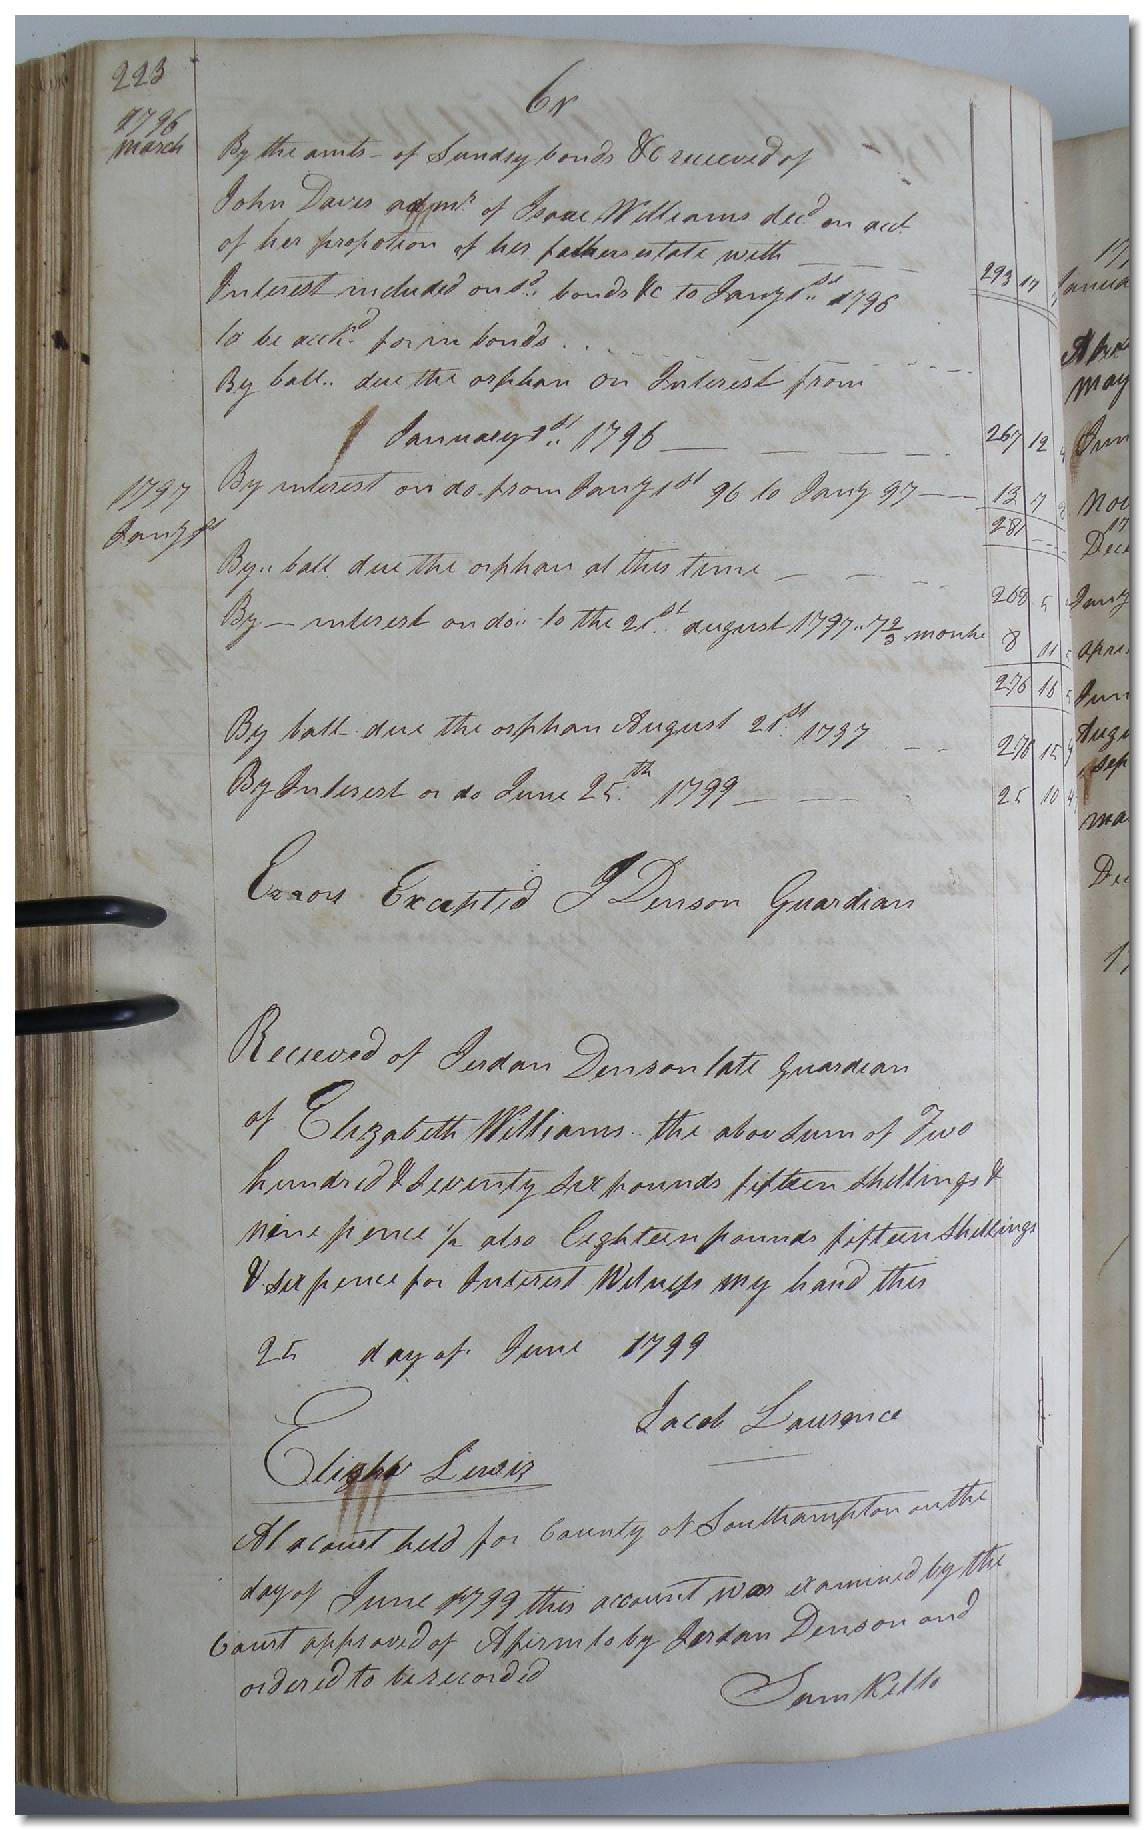 223
Cr
1796
March
By the amts - of Sundry bonds &c receeved of
John Davis admr. of Isaac Williams decd on acct
of her propotion of her fathers estate with
Interest included on sd. bonds &c to Jany 1st 1796 293 17
to be acctd for in bonds
By ball.. due the orphan on Interest from
January 1st.. 1796 267 12
1797
Jany 1st
By interest on do. from Jany 1st 96 to Jany 97 13 7
281
By.. ball due the orphan at this time 268 5
By interest on do.. to the 21st. august 1797.. 7 2/3 monhs 8 11
276 16
By ball due the orphan August 21st. 1797 276 15 9
By Interest o do June 25th. 1799 25 10 4
Errors Excepted J Denson Guardian
Receeved of Jordan Denson late Guardian
of Elizabeth Williams.. the abov sum of Two
hundred & seventy six pounds fifteen shillings &
nine pence 1/2 also Eighteen pounds fifteen shillings
& six pence for Interest Witness my hand this
25 day of June 1799
Jacob Laurence
Lewis
At a court held for County of Southampton on the
day of June 1799 this account was examined by the
Court approved of Afirm to by Jordan Denson and
ordered to be recorded
Sam Kello
17
Janua
May
Jun
Nov
17
Dece
Jany
Apri
Jun
Augu
Sep
ma
De